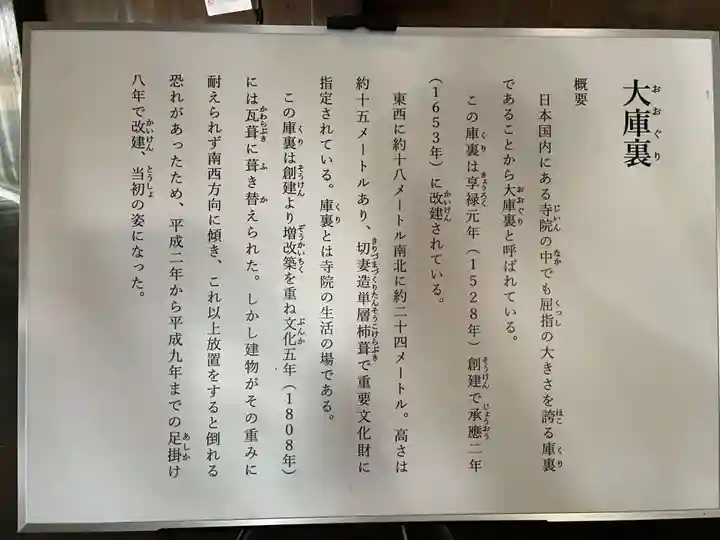 大庫裏
概要
日本国内にある寺院の中でも屈指の大きさを誇る庫裏
であることから大庫裏と呼ばれている。
この庫裏は享禄元年（1528年）創建で承應二年
（1653年）に改建されている。
東西に約十八メートル南北に約二十四メートル。高さは
約十五メートルあり、切妻造単層杮葺で重要文化財に
指定されている。庫裏とは寺院の生活の場である。
この庫裏は創建より増改築を重ね文化五年（1808年）
には瓦葺に葺き替えられた。しかし建物がその重みに
耐えられず南西方向に傾き、これ以上放置をすると倒れる
恐れがあったため、平成二年から平成九年までの足掛け
八年で改建、当初の姿になった。